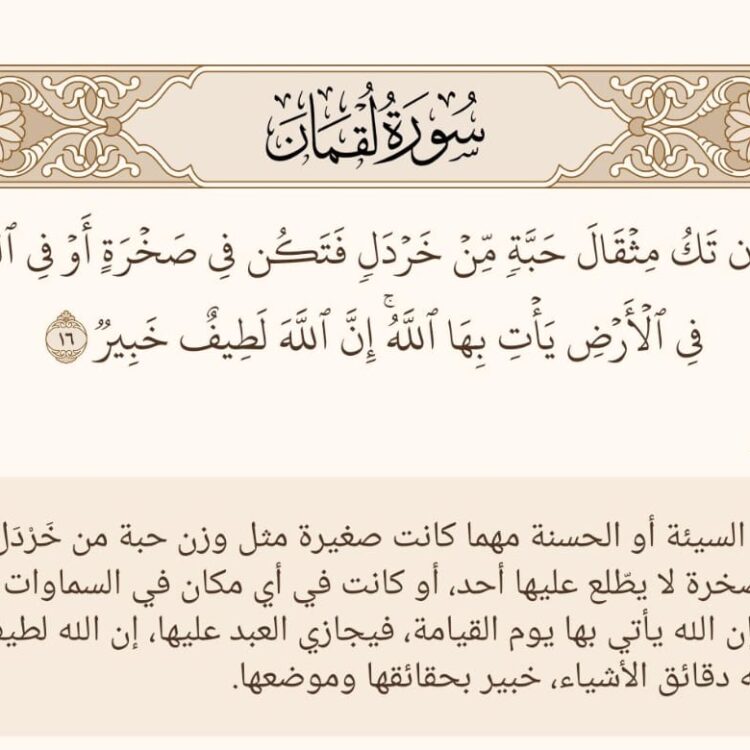 سُورَةُ لُقْمَانَ
تَكُ مِثْقَالَ حَبَّةٍ مِّنْ خَرْدَلٍ فَتَكُن فِي صَخْرَةٍ أَوْ فِي
فِي ٱلْأَرْضِ يَأْتِ بِهَا ٱللَّهُ ۚ إِنَّ ٱللَّهَ لَطِيفٌ خَبِيرٌ ١٦
السيئة أو الحسنة مهما كانت صغيرة مثل وزن حبة من خَرْدَل
لا يطّلع عليها أحد، أو كانت في أي مكان في السماوات
الله يأتي بها يوم القيامة، فيجازي العبد عليها، إن الله
دقائق الأشياء، خبير بحقائقها وموضعها.